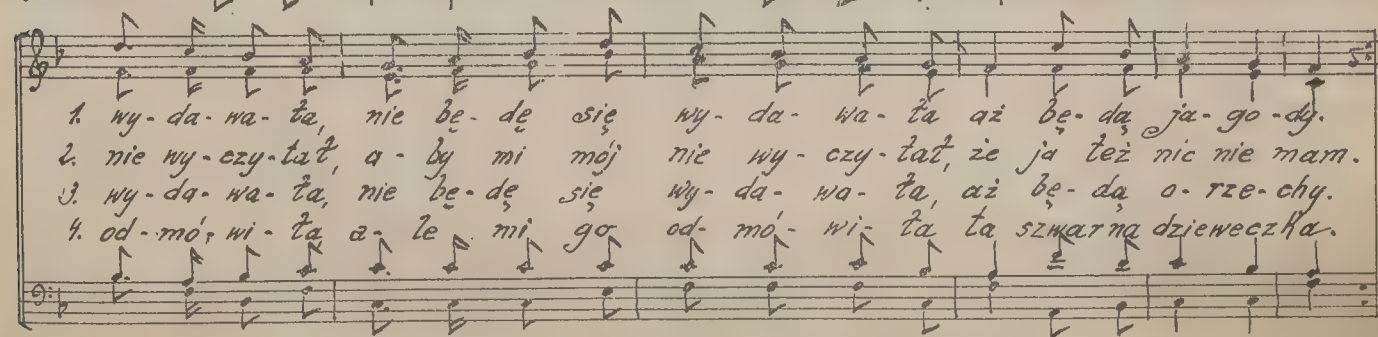 1. wy-da-wa-ła, nie bę-dę się wy-da-wa-ła aż bę-dą ja-go-dy.
2. nie wy-czy-tał, a-by mi mój nie wy-czy-tał, że ja też nic nie mam.
3. wy-da-wa-ła, nie bę-dę się wy-da-wa-ła, aż bę-dą o-rze-chy.
4. od-mó-wi-ła a-le mi go od-mó-wi-ła ta szwarna dzieweczka.